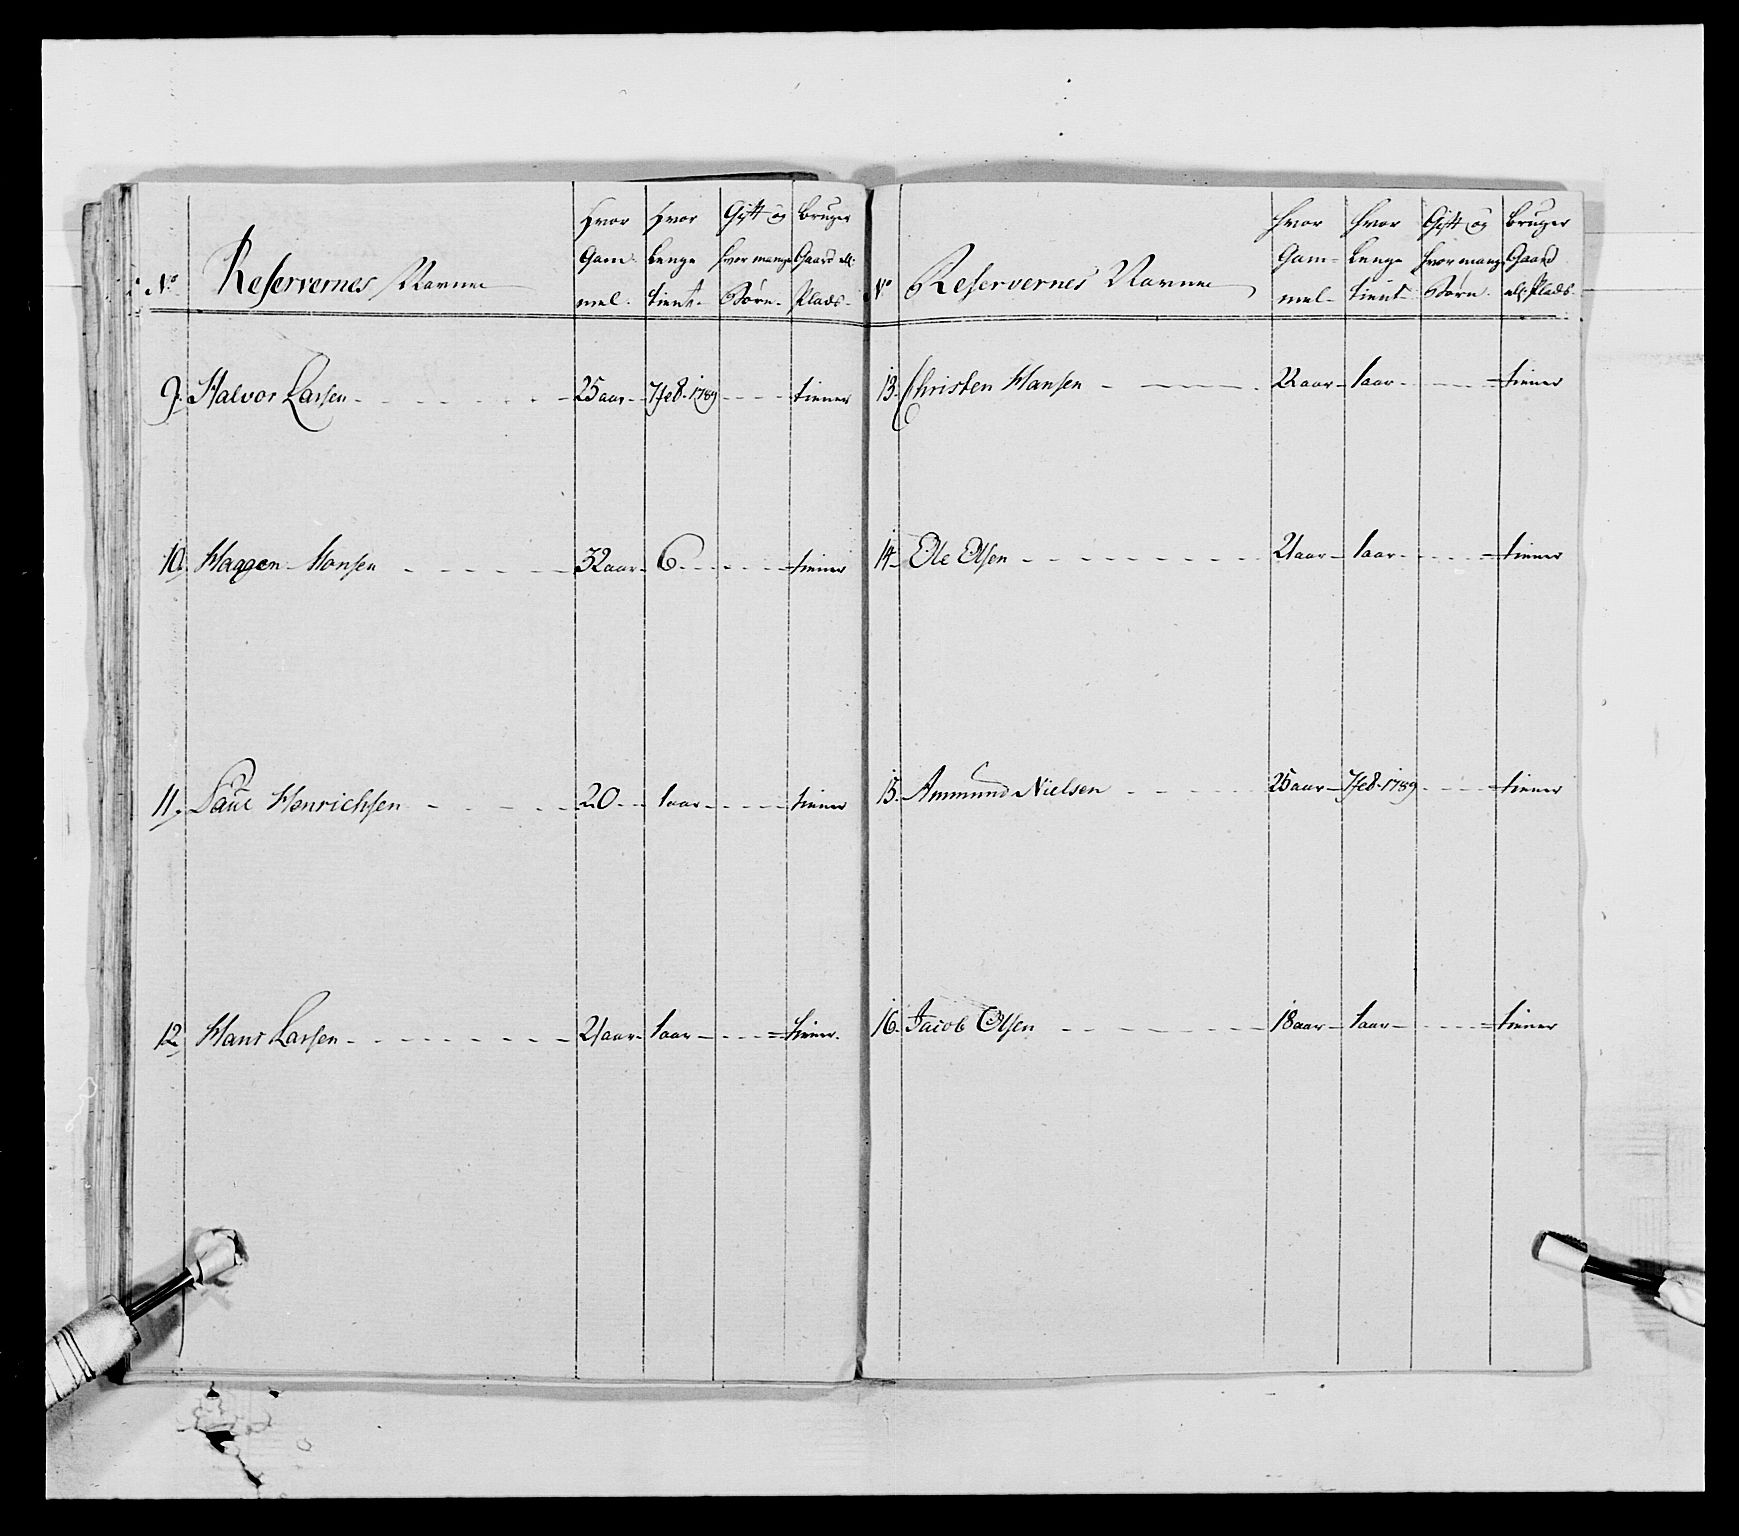 No Reservernes Navne Hvor Gam- mel. Hvor Lenge tient. Gift og hvor mange Børn. bruger Gaard ell. Plads.
9. Halvor Larsen 25 aar 7 feb. 1789 tiener
10. Haagen Hansen 32 aar 6 tiener
11. Paul Henrichsen 20 1 aar tiener
12. Hans Larsen 21 aar 1 aar tiener.
No Reservernes Navne Hvor Gam- mel. Hvor Lenge tient Gift og hvor mange Børn. bruger Gaard ell. Plads.
13. Christen Hansen 22 aar 1 aar tiener
14. Ole Olsen 21 aar 1 aar tiener
15. Ammund Nielsen 25 aar 7 feb. 1789 tiener
16. Jacob Olsen 18 aar 1 aar tiener